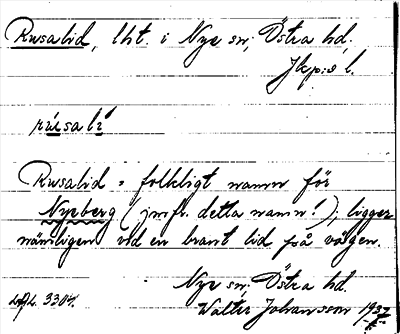 Rusalid, lht. i Nye sn, Östra hd.
Jkp:s l.
rúsalí
Rusalid = folkligt namn för
Nyeberg (jmfr. detta namn!); ligger
nämligen vid en brant lid på vägen.
Nye sn, Östra hd.
3304. Walter Johansson 1937